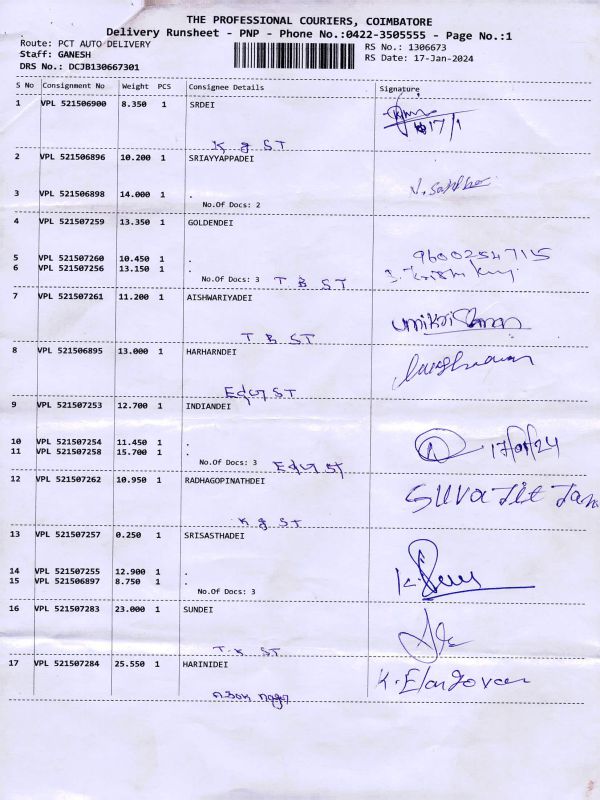 THE PROFESSIONAL COURIERS, COIMBATORE
Delivery Runsheet - PNP - Phone No.:0422-3505555 - Page No.:1
Route: PCT AUTO DELIVERY RS No.: 1306673
Staff: GANESH RS Date: 17-Jan-2024
DRS No.: DCJB130667301
S No Consignment No Weight PCS Consignee Details Signature
1 VPL 521506900 8.350 1 SRDEI
17/1
K g ST
2 VPL 521506896 10.200 1 SRIAYYAPPADEI
3 VPL 521506898 14.000 1 .
No.Of Docs: 2
4 VPL 521507259 13.350 1 GOLDENDEI
5 VPL 521507260 10.450 1 . 96002547115
6 VPL 521507256 13.150 1 .
No.Of Docs: 3 T B ST
7 VPL 521507261 11.200 1 AISHWARIYADEI
T B ST
8 VPL 521506895 13.000 1 HARHARNDEI
ST
9 VPL 521507253 12.700 1 INDIANDEI
10 VPL 521507254 11.450 1 . 17/01/24
11 VPL 521507258 15.700 1 .
No.Of Docs: 3 ST
12 VPL 521507262 10.950 1 RADHAGOPINATHDEI
SUVAJIT Jana
K g ST
13 VPL 521507257 0.250 1 SRISASTHADEI
14 VPL 521507255 12.900 1 .
15 VPL 521506897 8.750 1 .
No.Of Docs: 3
16 VPL 521507283 23.000 1 SUNDEI
T.K ST
17 VPL 521507284 25.550 1 HARINIDEI K. Elangovan